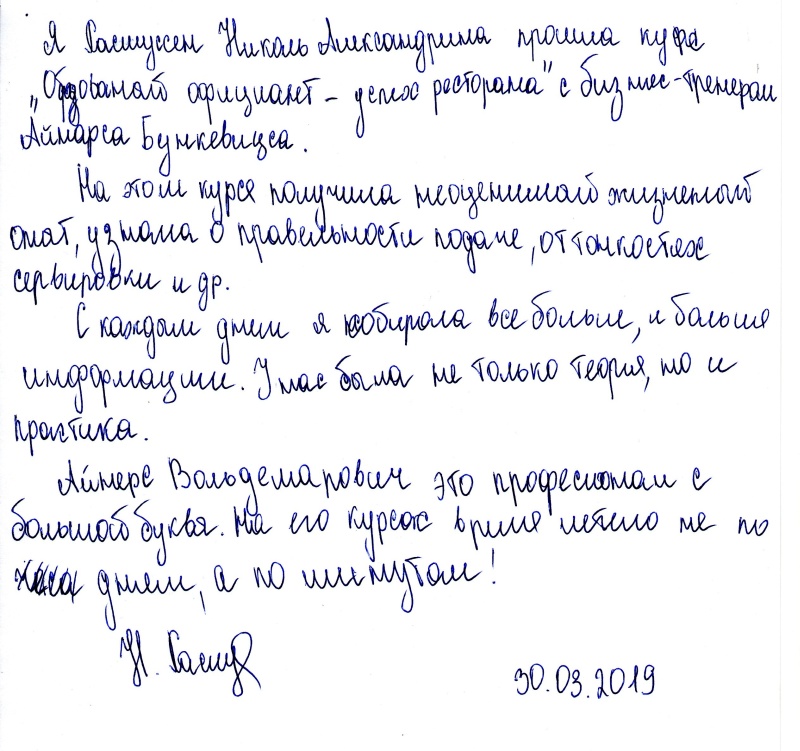 Я Расмуссен Николь Александрина прошла курс
„Образованый официант - успех ресторана" с бизнес-тренером
Аймарса Бункевицса.
На этом курсе получила неоценимый жизненый
опыт, узнала о правельности подаче, о тонкостях
сервировки и др.
С каждым днем я собирала все больше, и больше
информации. У нас была не только теория, но и
практика.
Аймарс Вольдемарович это професионал с
большой буквы. На его курсах время летело не по
дням, а по минутам!
Н. Расмус
30.03.2019